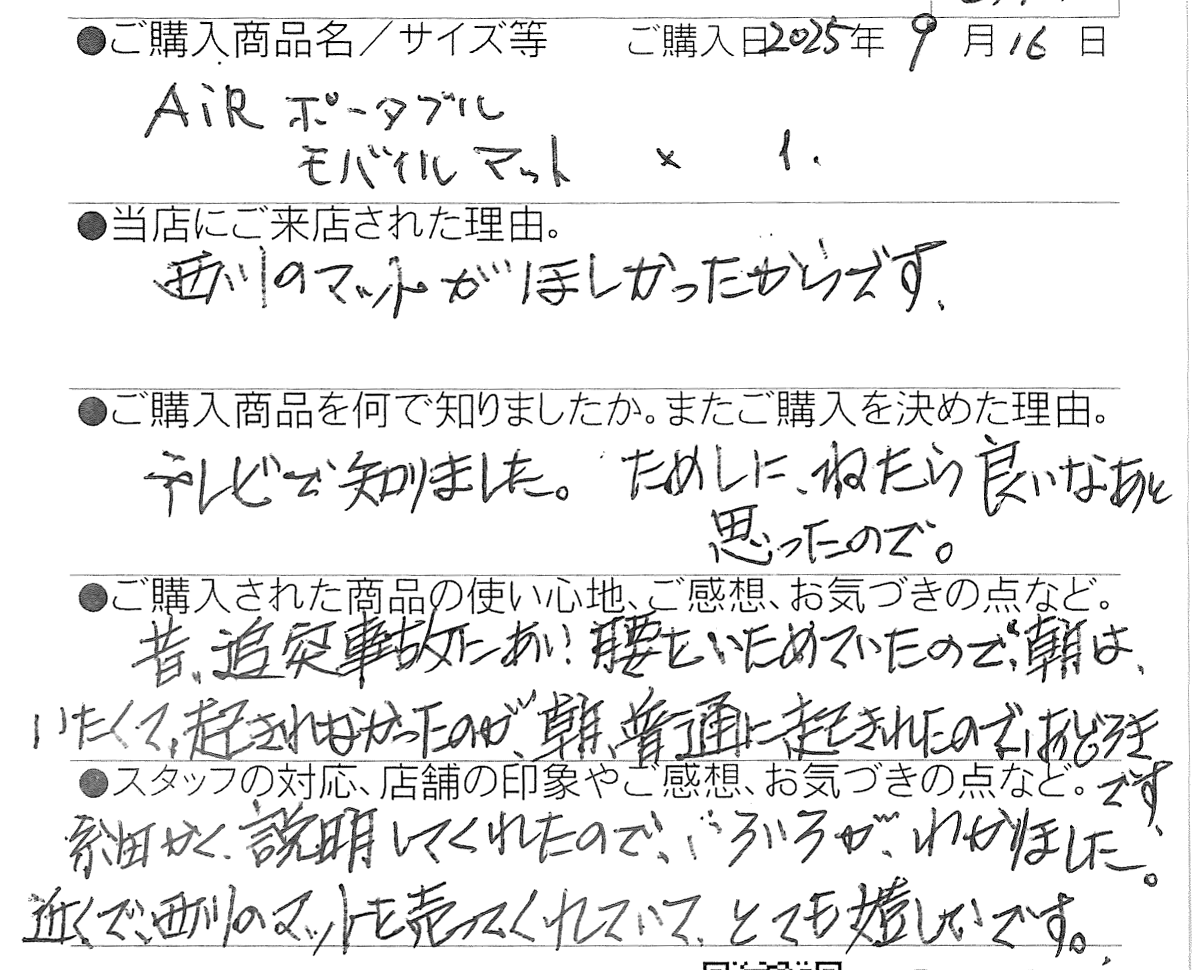 ●ご購入商品名／サイズ等　ご購入日2025年 9 月 16 日
AiR ポータブル
モバイルマット × 1.
●当店にご来店された理由。
西川のマットがほしかったからです、
●ご購入商品を何で知りましたか。またご購入を決めた理由。
テレビで知りました。ためしに、ねたら良いなあと
思ったので。
●ご購入された商品の使い心地、ご感想、お気づきの点など。
昔、追突事故にあい、腰をいためていたので、朝は、
いたくて、起きれなかったのが、朝、普通に起きれたので、おどろき
●スタッフの対応、店舗の印象やご感想、お気づきの点など。
です、
細かく、説明してくれたので、いろいろが、わかりました。
近くで、西川のマットを売ってくれていて、とても嬉しいです。